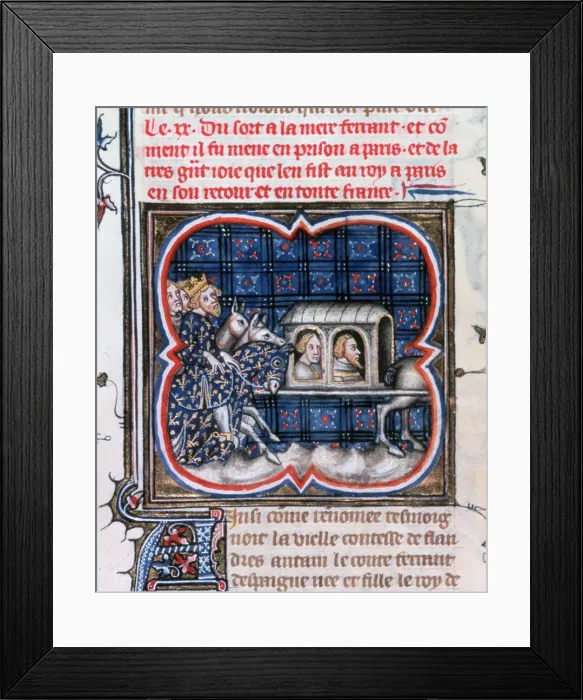 Le .xx. Du sort a la mere ferrant. et cō
ment il fu mene en prison a paris. et de la
tres grāt ioie que len fist au roy a paris
en son retour et en toute france.
Ainsi cōme renomee tesmoig
noit la vielle contesse de flan
dres antain le conte ferrant
despaigne nee et fille le roy de